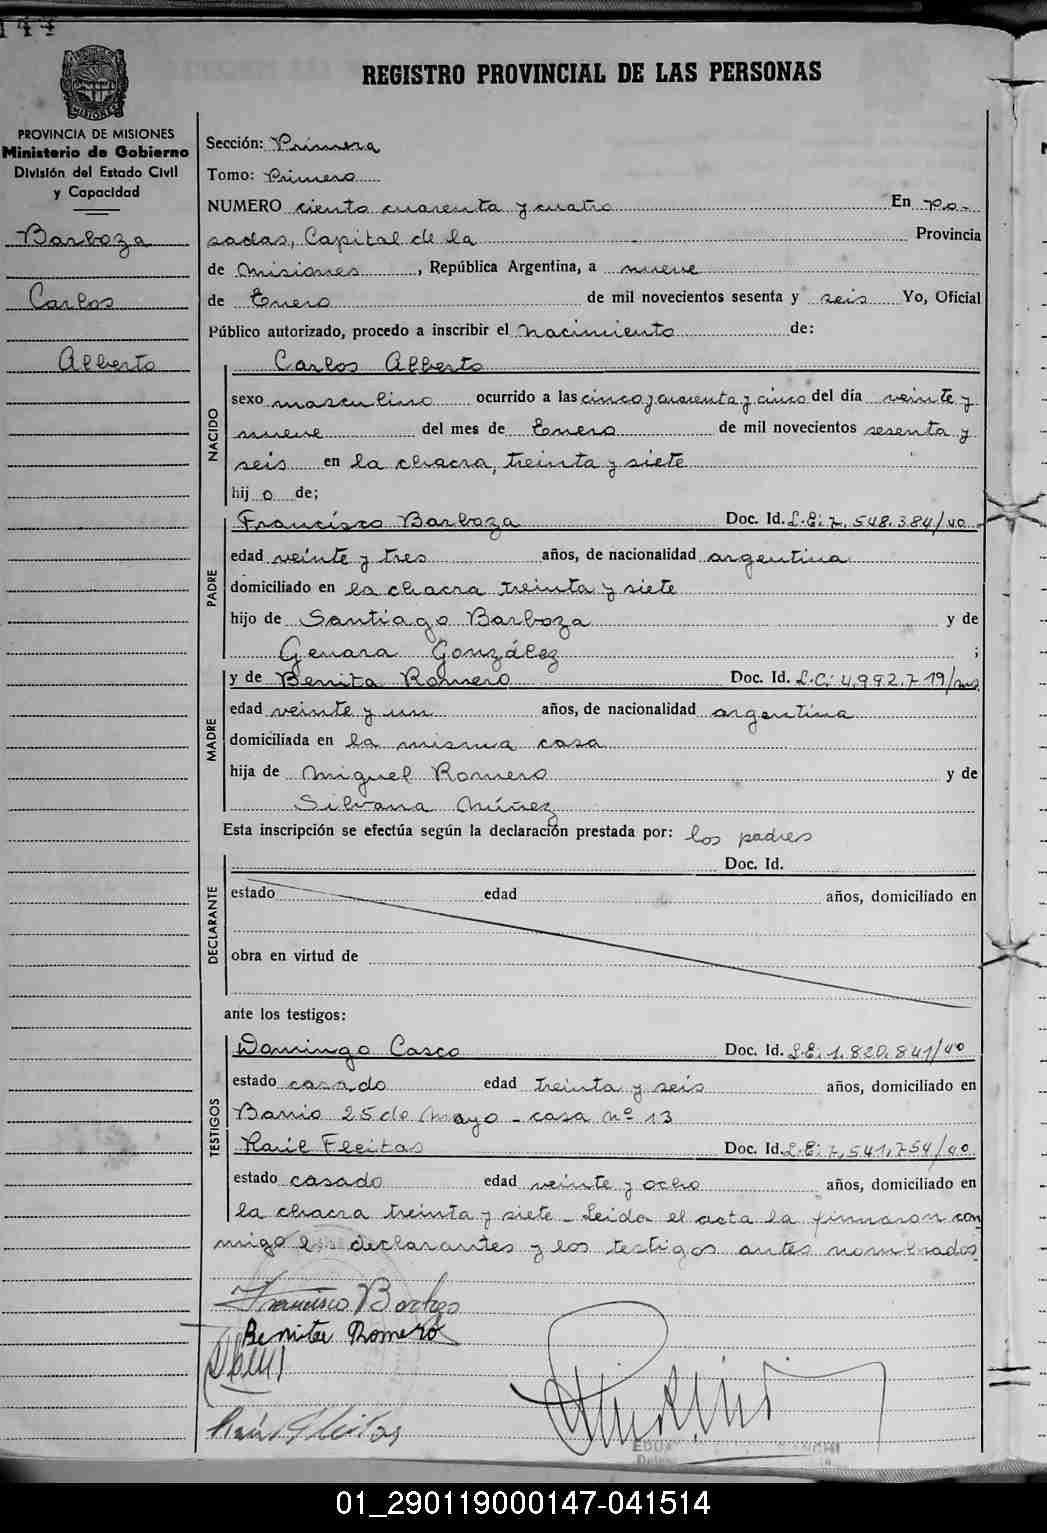 144
REGISTRO PROVINCIAL DE LAS PERSONAS
PROVINCIA DE MISIONES
Ministerio de Gobierno
División del Estado Civil
y Capacidad
Barboza
Carlos
Alberto
Sección: Primera
Tomo: Primero
NUMERO ciento cuarenta y cuatro En Po-
sadas, Capital de la Provincia
de Misiones, República Argentina, a nueve
de Enero de mil novecientos sesenta y seis Yo, Oficial
Público autorizado, procedo a inscribir el nacimiento de:
Carlos Alberto
NACIDO
sexo masculino ocurrido a las cinco y cuarenta y cinco del día veinte y
nueve del mes de Enero de mil novecientos sesenta y
seis en la chacra, treinta y siete
hij o de;
PADRE
Francisco Barboza Doc. Id. L.E: 7.548.384/40
edad veinte y tres años, de nacionalidad argentina
domiciliado en la chacra treinta y siete
hijo de Santiago Barboza y de
Genara González ;
MADRE
y de Benita Romero Doc. Id. L.C: 4.992.719/ms
edad veinte y un años, de nacionalidad argentina
domiciliada en la misma casa
hija de Miguel Romero y de
Silvana Núñez
Esta inscripción se efectúa según la declaración prestada por: los padres
DECLARANTE
Doc. Id.
estado edad años, domiciliado en
obra en virtud de
ante los testigos:
TESTIGOS
Domingo Casco Doc. Id. L.E: 1.820.841/40
estado casado edad treinta y seis años, domiciliado en
Barrio 25 de Mayo - casa nº 13
Raúl Fleitas Doc. Id. L.E: 7.541.754/40
estado casado edad veinte y ocho años, domiciliado en
la chacra treinta y siete - Leida el acta la firmaron con
migo los declarantes y los testigos antes nombrados
Francisco Barboza
Benita Romero
Raúl Fleitas
01_290119000147-041514